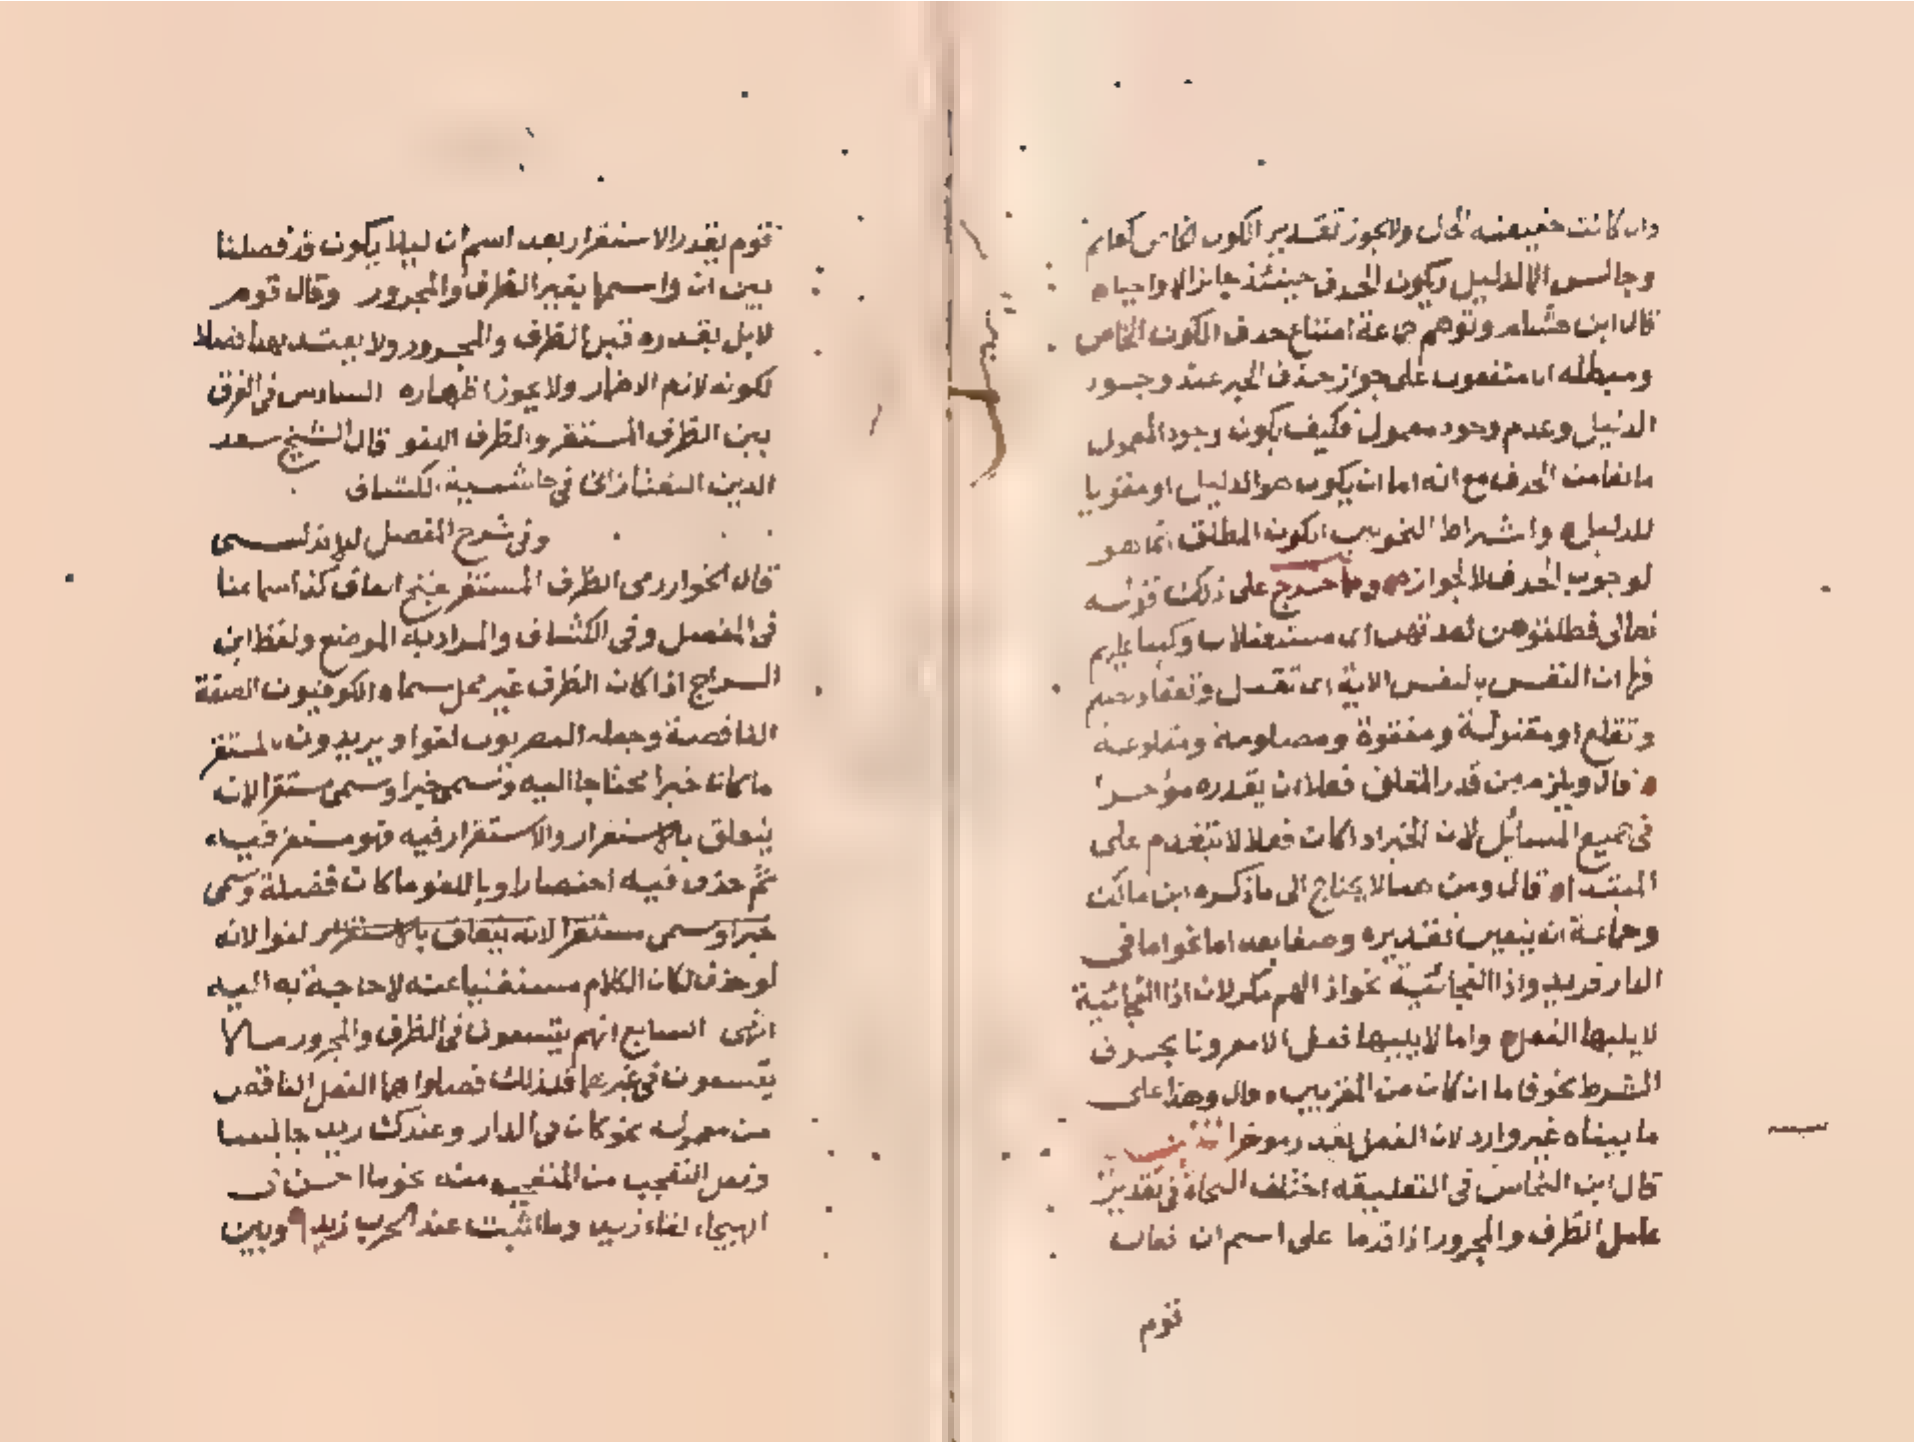 وان كانت حقيقته الحال ولايجوز تقدير الكون الخاص كقايم
وجالس الا لدليل ويكون الحذف حينئذ جايزا لا واجبا
قال ابن هشام وتوهم جماعة امتناع حذف الكون الخاص
ومبطله انا متفقون على جواز حذف الخبر عند وجود
الدليل وعدم وجود معمول فكيف يكون وجود المعمول
مانعا من الحذف مع انه اما ان يكون هو الدليل او مقويا
للدليل واشتراط النحويين الكون المطلق انما هو
لوجوب الحذف لا لجوازه ومما خرج على ذلك قوله
تعالى فطلقوهن لعدتهن اي مستقبلات وكتبنا عليهم
فيها ان النفس بالنفس الاية اي تقتل وتفقا
وتقلع او مقتولة ومفقوة ومصلومة ومقلوعة
قال ويلزم من قدر المتعلق فعلا ان يقدره موخرا
في جميع المسائل لان الخبر اذا كان فعلا لا يتقدم على
المبتدا قال ومن هنا لا يحتاج الى ما ذكره ابن مالك
وجماعة انه يتعين تقديره وصفا بعد اما نحو اما في
الدار فزيد واذا الفجائية نحو اذا لهم مكر لان اذا الفجائية
لا يليها الفعل واما لا يليها فعل الا مقرونا بحرف
الشرط نحو فاما ان كان من المقربين قال وهذا على
ما بيناه غير وارد لان الفعل يقدر موخرا
قال ابن النحاس في التعليقه اختلف النحاة في تقدير
عامل الظرف والمجرور اذا قدما على اسم ان فقال
قوم
قوم يقدر الاستقرار بعد اسم ان ليلا يكون قد فصلنا
بين ان واسمها بغير الظرف والمجرور وقال قوم
لا بل يقدره قبل الظرف والمجرور ولا يعتد بهذا فصلا
لكونه لازم الاضمار ولا يجوز اظهاره السادس في الفرق
بين الظرف المستقر والظرف اللغو قال الشيخ سعد
الدين التفتازاني في حاشية الكشاف
وفي شرح المفصل للاندلسي
قال الخوارزمي الظرف المستقر بفتح القاف كذا سماعنا
في المفصل وفي الكشاف والمراد به الموضع ولفظ ابن
السراج اذا كان الظرف غير محل سماه الكوفيون الصفة
الناقصة وجعله البصريون لغوا ويريدون بالمستقر
ما كان خبرا محتاجا اليه وتسمى خبرا وسمى مستقرا لانه
يتعلق بالاستقرار والاستقرار فيه فهو مستقر فيه
ثم حذف فيه اختصارا وباللغو ما كان فضلة وسمى
خبرا وسمى مستقرا لانه يتعلق بالاستقرار لغوا لانه
لو حذف لكان الكلام مستغنيا عنه لا حاجة به اليه
انتهى السابع انهم يتسعون في الظرف والمجرور مالا
يتسعون في غيرهما فلذلك فصلوا بهما الفعل الناقص
من معموله نحو كان في الدار وعندك زيد جالسا
وفعل التعجب من المتعجب منه نحو ما احسن في
الهيجاء لقاء زيد وما اثبت عند الحرب زيدا وبين